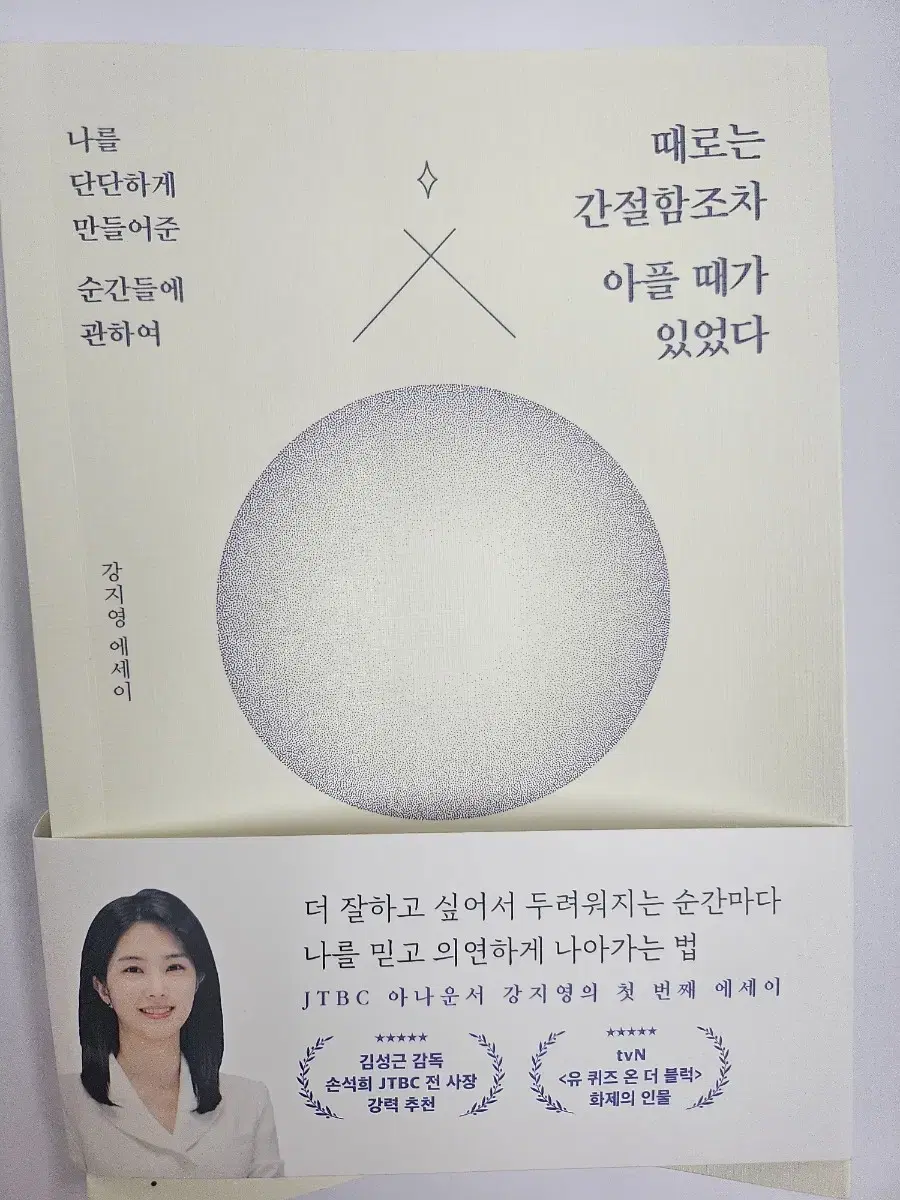 나를
단단하게
만들어준
순간들에
관하여
때로는
간절함조차
아플 때가
있었다
강지영 에세이
더 잘하고 싶어서 두려워지는 순간마다
나를 믿고 의연하게 나아가는 법
JTBC 아나운서 강지영의 첫 번째 에세이
★★★★★
김성근 감독
손석희 JTBC 전 사장
강력 추천
★★★★★
tvN
<유 퀴즈 온 더 블럭>
화제의 인물